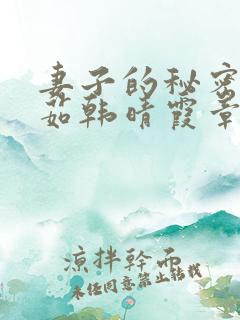 妻子的秘密
茹韩晴霞章
凉拌干而
未经同意禁止转载